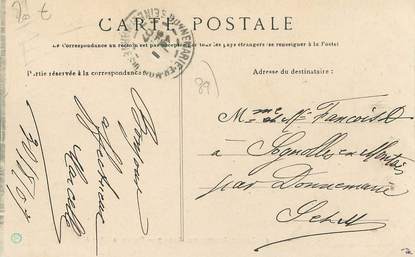 CARTE POSTALE
Le Correspondance au recto n'est pas acceptée par tous les pays étrangers (se renseigner à la Poste)
Partie réservée à la correspondance
Adresse du destinataire :
DONNEMARIE-EN-MONTOIS
SEINE
89
Bonjour
affectueux
Marcelle
M me et Mr Francois
à Sognolles en Montois
par Donnemarie
S et M